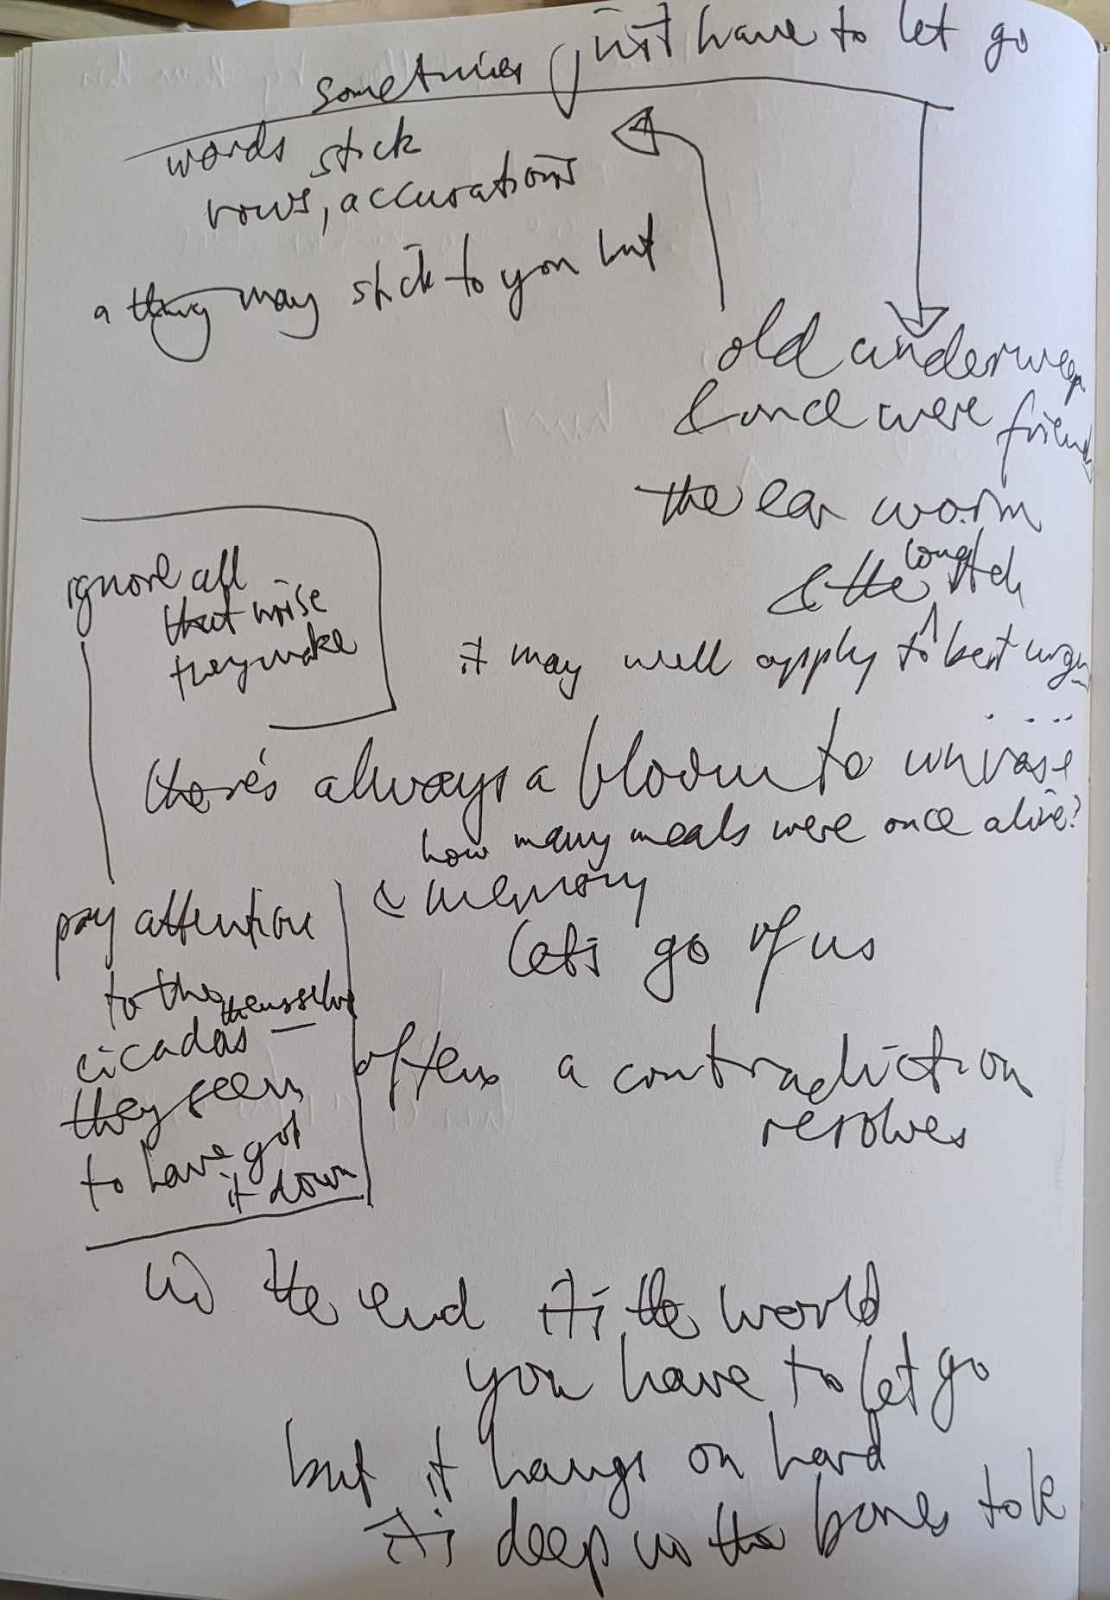 sometimes just have to let go
words stick
rows, accusations
a thing may stick to you but
old underwear
& once were friends
the ear worm
& the cough itch
it may well apply to best urges
ignore all
that noise
they make
there's always a bloom to unvase
how many meals were once alive?
& memory
let's go of us
pay attention
to the themselves
cicadas
they seem
to have got
it down
often a contradiction
resolves
in the end it's the world
you have to let go
but it hangs on hard
it's deep in the bones to